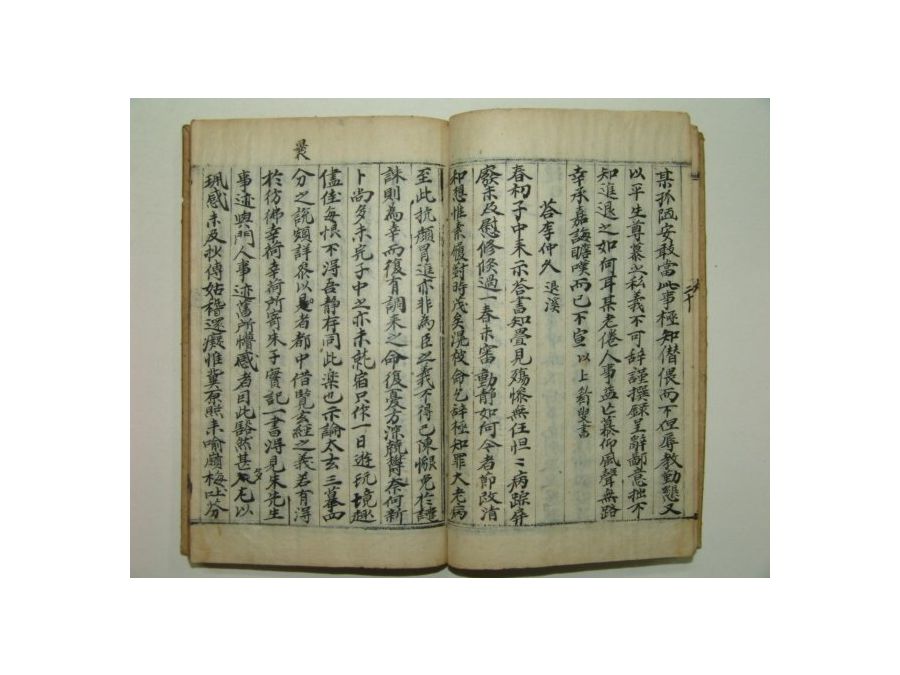 某孤陋安敢當此事極知僭偎而不但辱教勤懇又
以平生尊慕之私義不可辭謹撰錄呈辭鄙意拙不
知進退之如何耳某老倦人事益亡慕仰風聲無路
幸承嘉誨瞻噗而已不宣 以上 書
答李仲久 退溪
春初子中來示答書知疊見殤慘無任怛〻病踪屛
廢未及慰修倏過一春未審動靜如何令者節改清
和想惟素履對時茂矣滉彼命乞辭極知罪大老病
至此抗顔冒進亦非為臣之義不得已陳懇免於譴
誅則為幸而復有調來之命復憂方深兢鬱奈何新
卜尚多未完子中之亦未就宿只作一日遊玩境趣
儘佳每恨不得吾靜存同此樂也示論太玄三摹而
分之說頗詳啓以是者都中借覽玄經之義若有得
於彷彿幸荷幸荷所寄朱子實記一書得見朱先生
事迹與門人事迹舊所懵感者因此豁然甚 尤以
珮感未及抄傳姑稽還癡惟冀原照來喻願梅吐芬